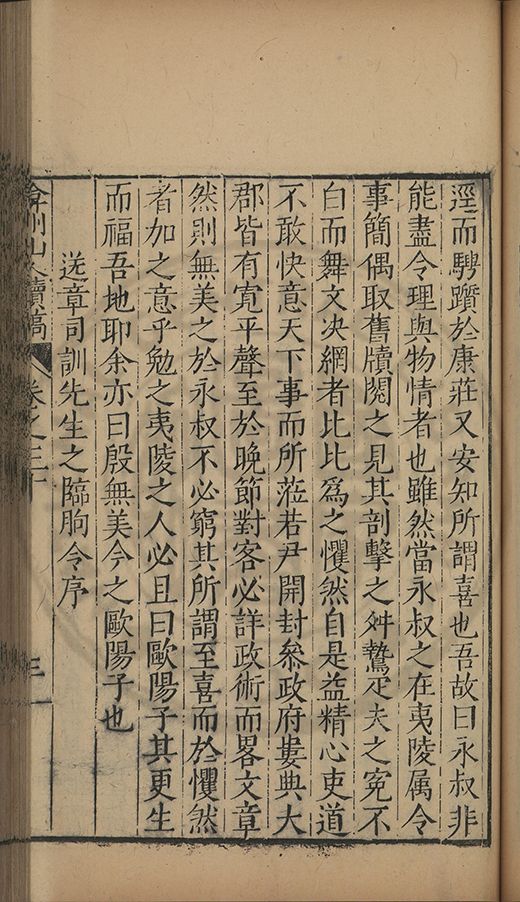 逕而騁躓於康莊又安知所謂喜也吾故曰永叔非
能盡令理與物情者也雖然當永叔之在夷陵属令
事簡偶取舊牘閱之見其剖擊之舛鷙疋夫之寃不
白而舞文决網者比比爲之懼然自是益精心吏道
不敢快意天下事而所蒞若尹開封叅政府婁典大
郡皆有寛平聲至於晚節對客必詳政術而畧文章
然則無美之於永叔不必窮其所謂至喜而於懼然
者加之意乎勉之夷陵之人必且曰歐陽子其更生
而福吾地耶余亦曰殷無美今之歐陽子也
送章司訓先生之臨朐令序
弇州山人續稿 卷之三十